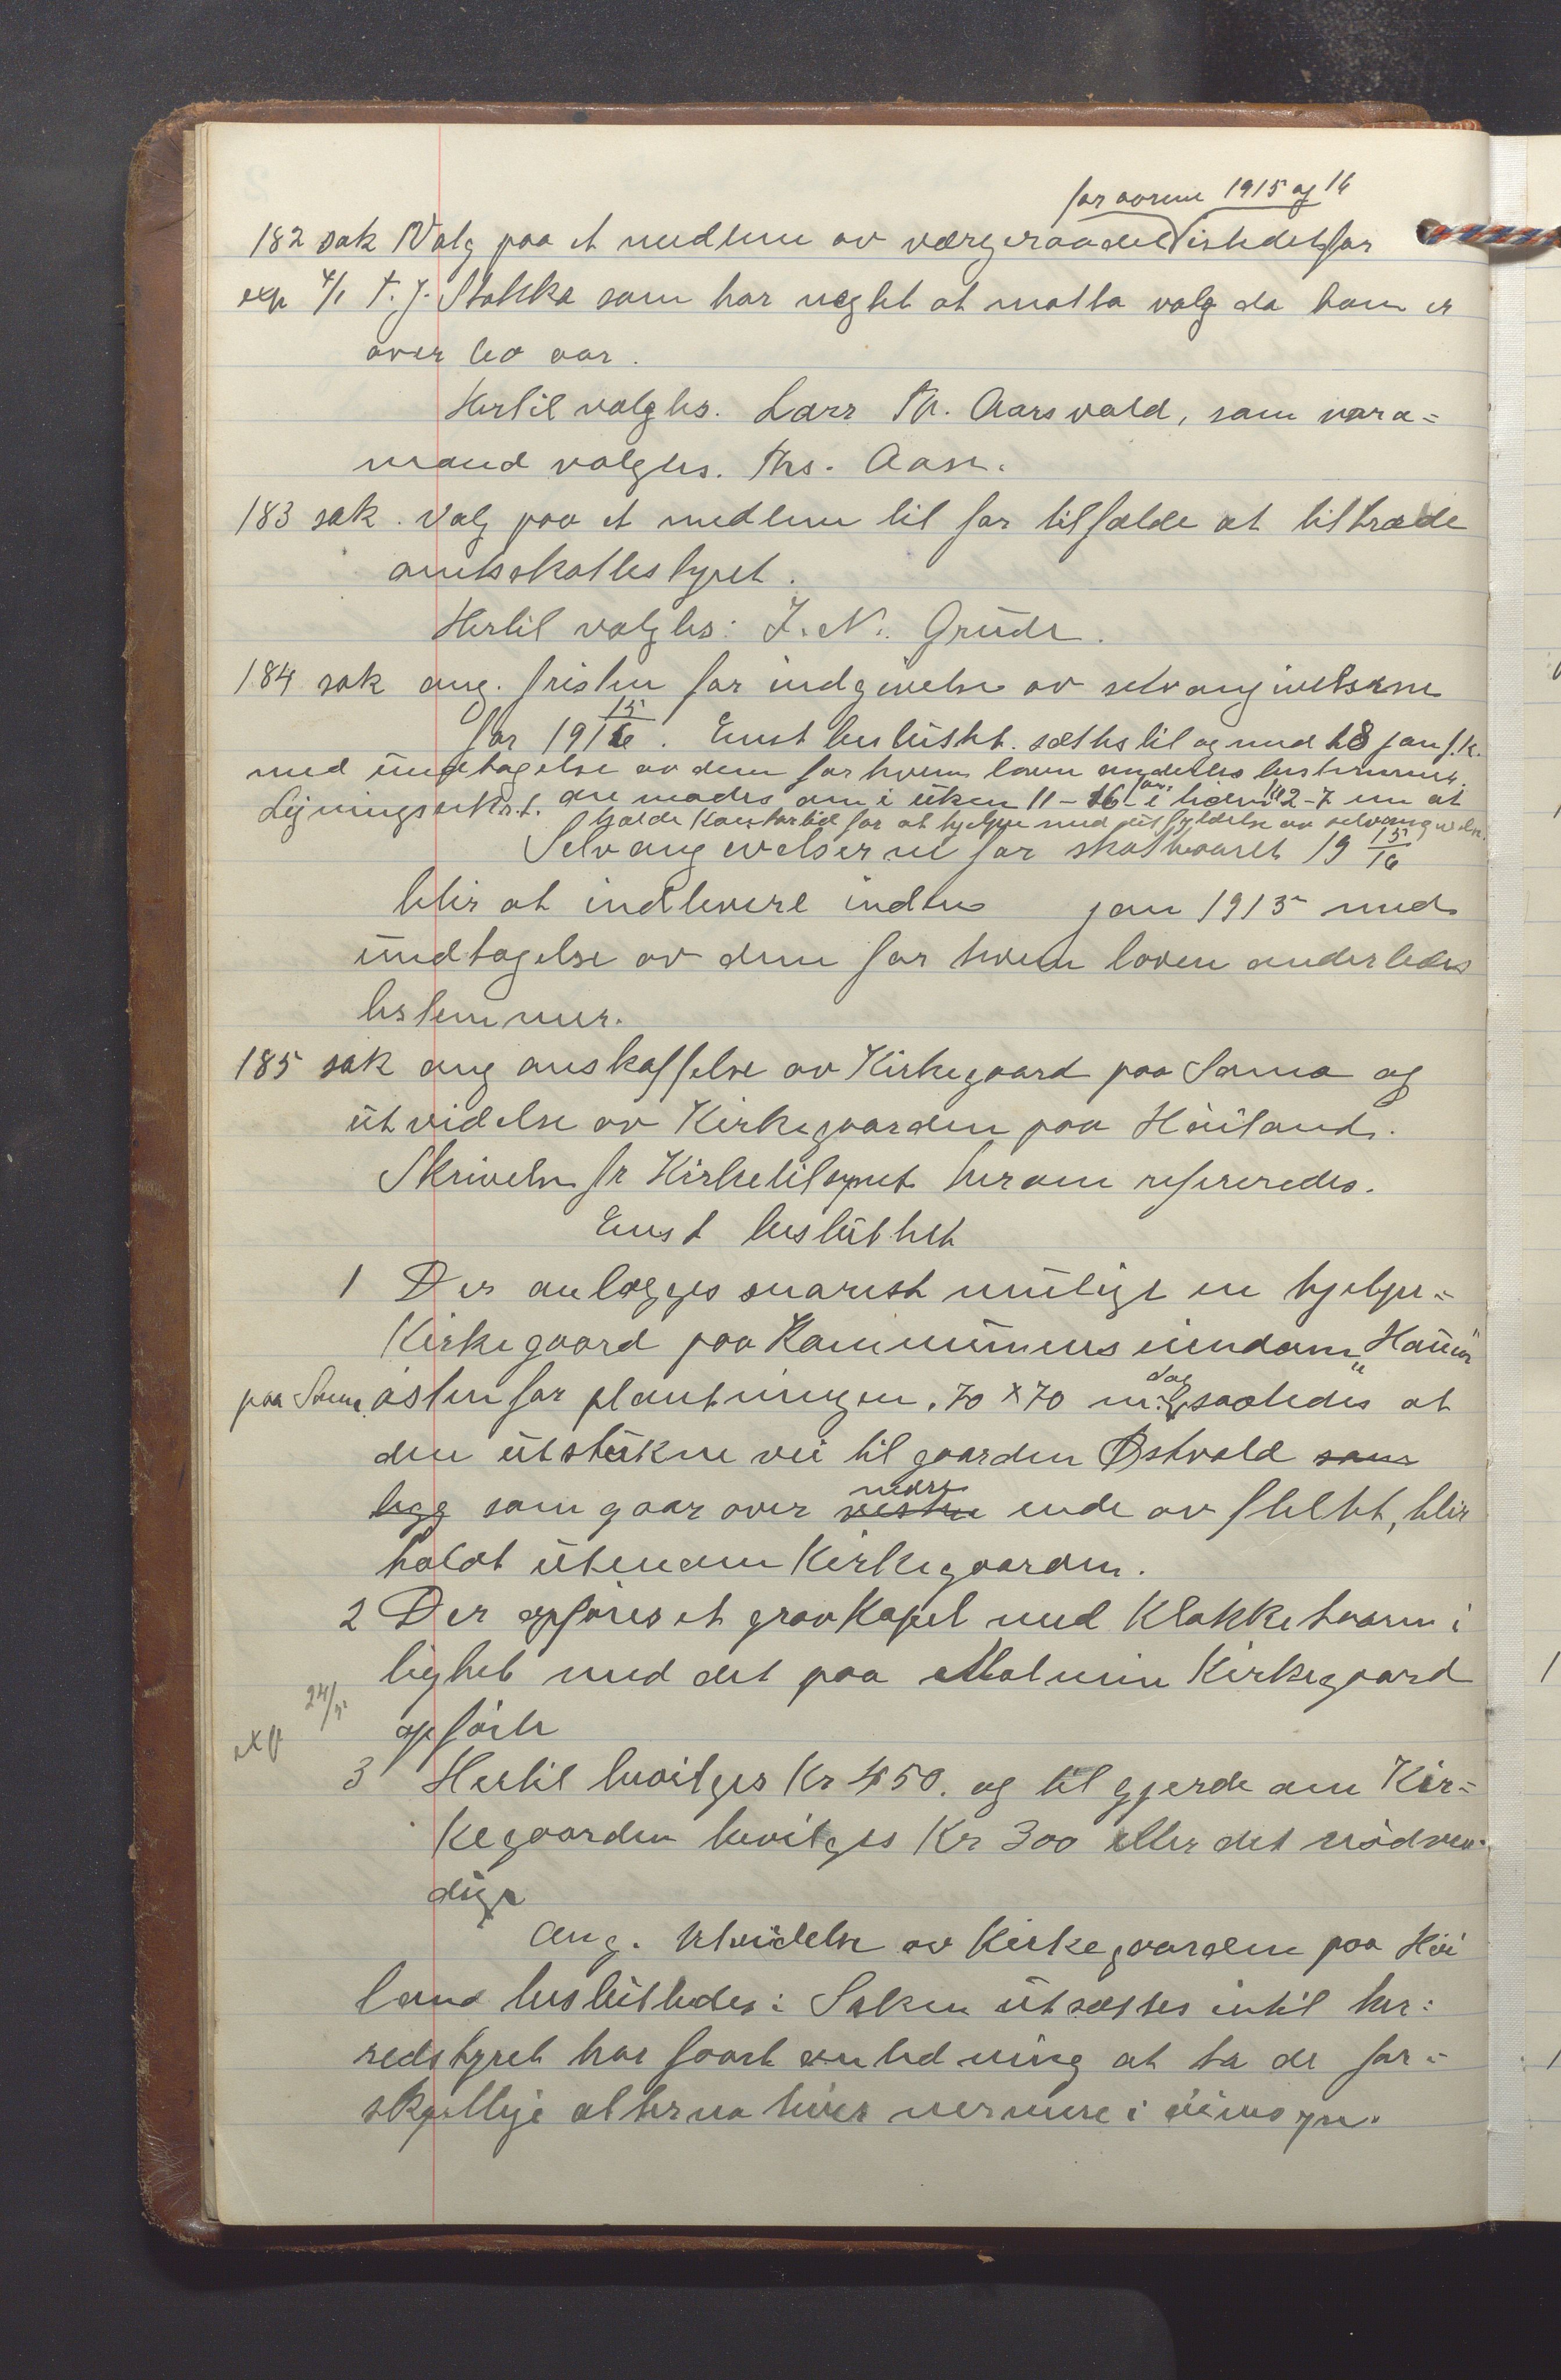 for aarene 1915 og 16
182 sak Valg paa et medlem av værgeraadet istedetfor
exp 4/1 T. J. Stokka som har negtet at motta valg da han er
over 60 aar.
Hertil valgtes. Lars Th. Aarsvold, som vara=
mand valgtes. Ths. Aase.
183 sak. Valg paa et medlem til for tilfælde at tiltræde
amtsskattestyret.
Hertil valgtes: J. N. Grude.
184 sak ang. fristen for indgivelse av selvangivelserne
for 19 15/16. Enst besluttet. sættes til og med 18 jan f. k.
med undtagelse av dem for hvem loven anderledes bestemmer.
Ligningssekr. f. an. i uken 11-16 jan. 2-7 em at
holde Kontortid for at hjelpe med utfyldelse av selvangivelse.
Selvangivelserne for skatteaaret 19 15/16
blir at indlevere inden jan 1915 med
undtagelse av dem for hvem loven anderledes
bestemmer.
185 sak ang anskaffelse av Kirkegaard paa Soma og
utvidelse av Kirkegaarden paa Höiland.
Skrivelse fr Kirketilsynet herom refereredes.
Enst besluttet
1 Der anlægges snarest mulige en hjelpe=
Kirkegaard paa Kommunens eiendom "
paa Soma østenfor plantningen. 70 x 70 m. dog saaledes at
den utstukne vei til gaarden Østvold som
legg som gaar over nedre vestre ende av feltet, blir
holdt utenom Kirkegaarden.
2 Der opføres et gravKapel med Klokketaarn i
lighet med det paa Malmin Kirkegaard
opførte
exp 24/5
3 Hertil bevilges Kr 450. og til gjerde om Kir=
kegaarden bevilges Kr 300 eller det nødven-
dige
Ang. Utvidelse av Kirkegaarden paa Höi
land besluttedes: Saken utsættes intil her=
redstyret har faat anledning at ta de for=
skjellige alternativer nermere i øiesyn.